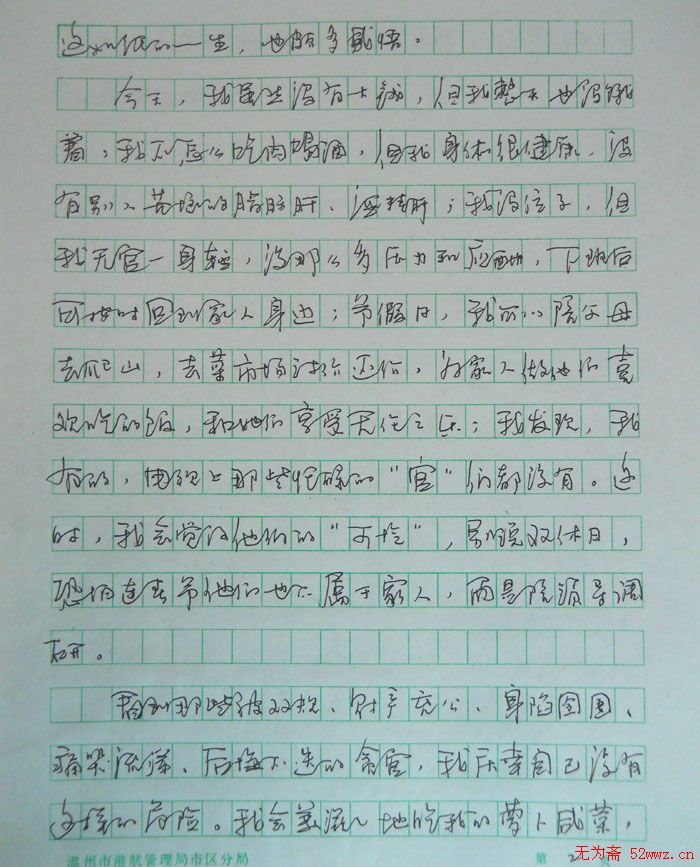 这如纸的一生，也颇多感悟。
今天，我虽然没有大钱，但我整天也没饿
着；我不怎么吃肉喝酒，但我身体很健康，没
有别人苦恼的脂肪肝、酒精肝；我没位子，但
我无官一身轻，没那么多压力和应酬，下班后
可按时回到家人身边；节假日，我可以陪父母
去爬山，去菜市场讨价还价，为家人做他们喜
欢吃的饭，和她们享受天伦之乐；我发现，我
有的，电视上那些忙碌的“官”们都没有。这
时，我会觉得他们的“可怜”，别说双休日，
恐怕连春节他们也不属于家人，而是陪领导调
研。
看到那些被双规、财产充公、身陷囹圄、
痛哭流涕、后悔不迭的贪官，我庆幸自己没有
这样的风险。我会美滋滋地吃我的萝卜咸菜，
温州市港航管理局市区分局 第 2
无为斋 52wwz.cn